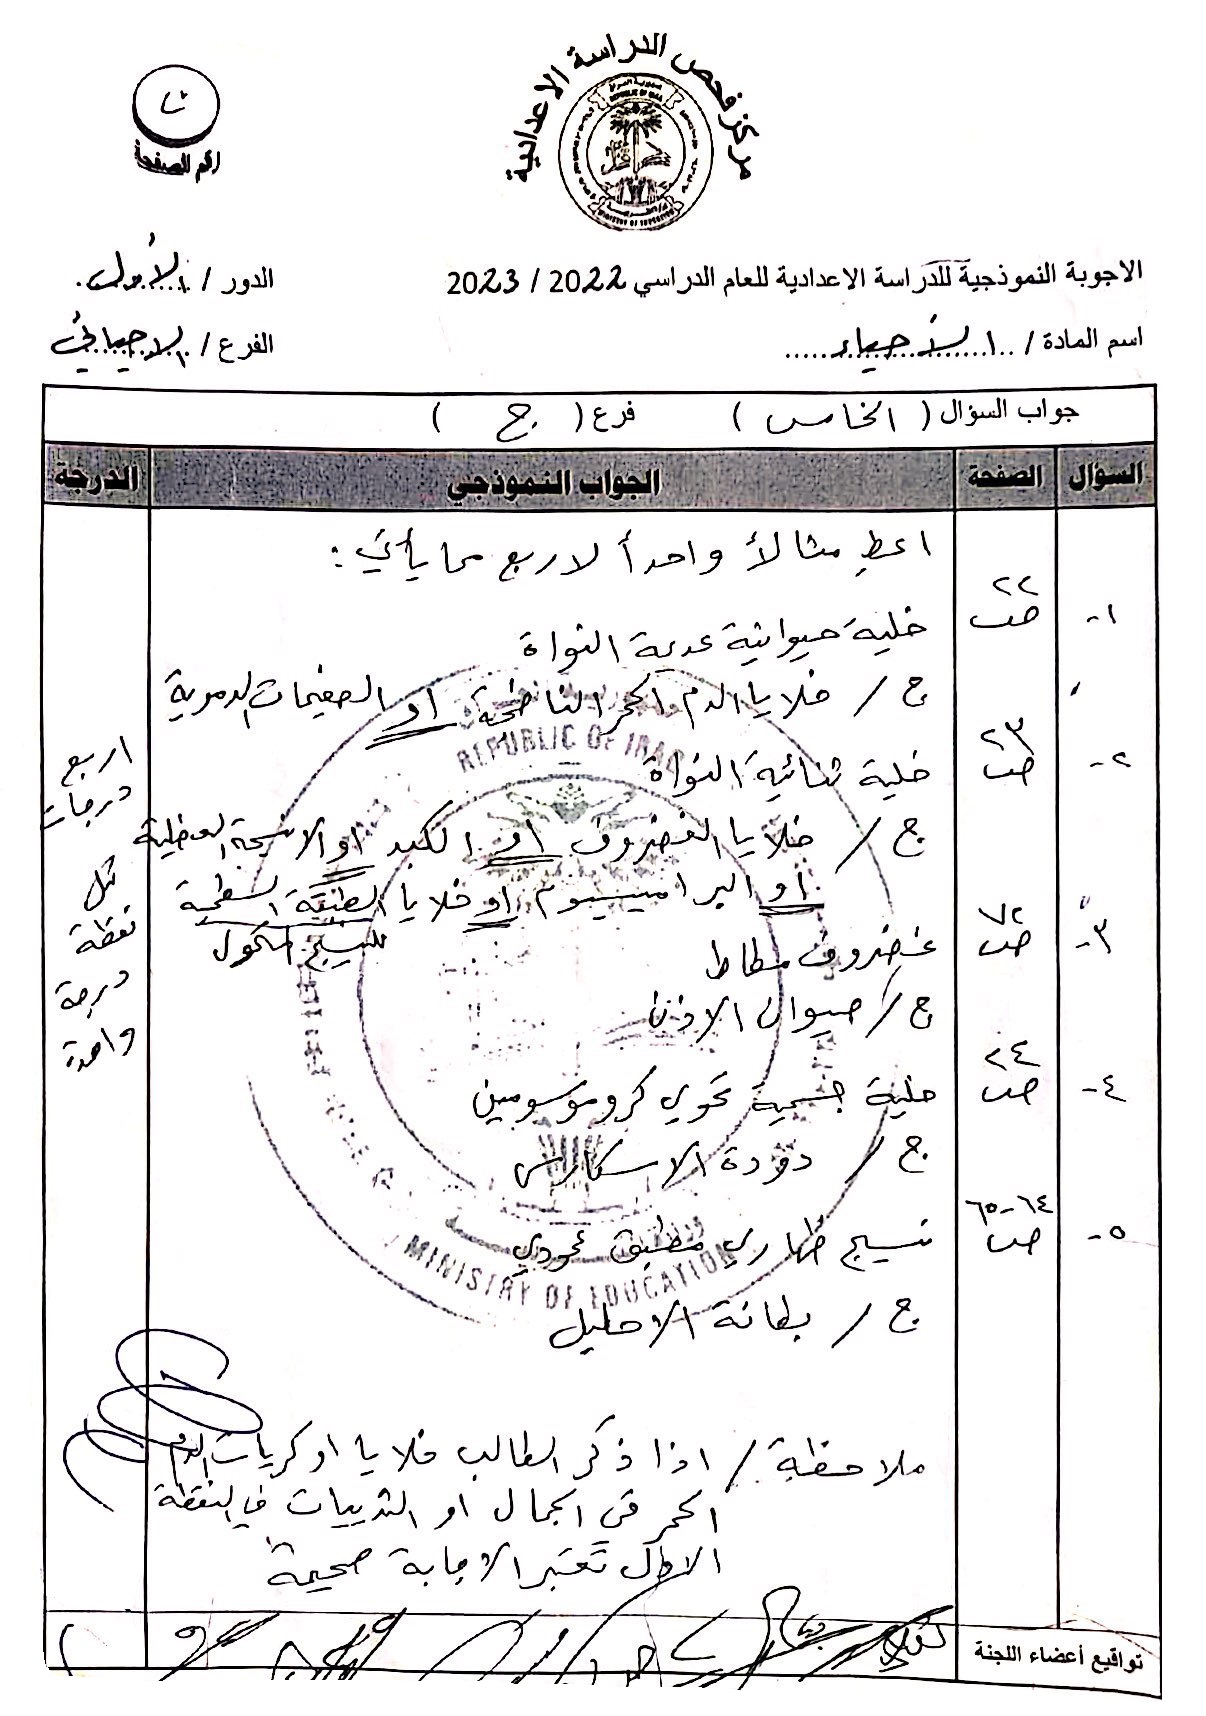 مركز فحص الدراسة الاعدادية
جمهورية العراق
REPUBLIC OF IRAQ
MINISTRY OF EDUCATION
رقم الصفحة
الاجوبة النموذجية للدراسة الاعدادية للعام الدراسي 2022 / 2023
الدور / الأول
اسم المادة / الأحياء
الفرع / الاحيائي
جواب السؤال ( الخامس ) فرع ( ج )
السؤال الصفحة الجواب النموذجي الدرجة
اعطِ مثالاً واحداً لاربع مما يأتي :
١- ص٢٢ خلية حيوانية عديمة النواة
ج / خلايا الدم الحمر الناضجة او الصفيحات الدموية
٢- ص٢٣ خلية ثنائية النواة
ج / خلايا الغضروف او الكبد او الانسجة العضلية
او البراميسيوم او خلايا الطبقة السطحية
للنسيج المتحول
٣- ص٧٢ غضروف مطاط
ج / صيوان الاذن
٤- ص٢٤ خلية جسمية تحوي كروموسومين
ج / دودة الاسكارس
٥- ص٦٤-٦٥ نسيج ظهاري مطبق عمودي
ج / بطانة الاحليل
اربع
درجات
لكل
نقطة
درجة
واحدة
REPUBLIC OF IRAQ
MINISTRY OF EDUCATION
ملاحظة / اذا ذكر الطالب خلايا او كريات الدم
الحمر في الجمال او الثدييات في النقطة
الاولى تعتبر الاجابة صحيحة
تواقيع أعضاء اللجنة